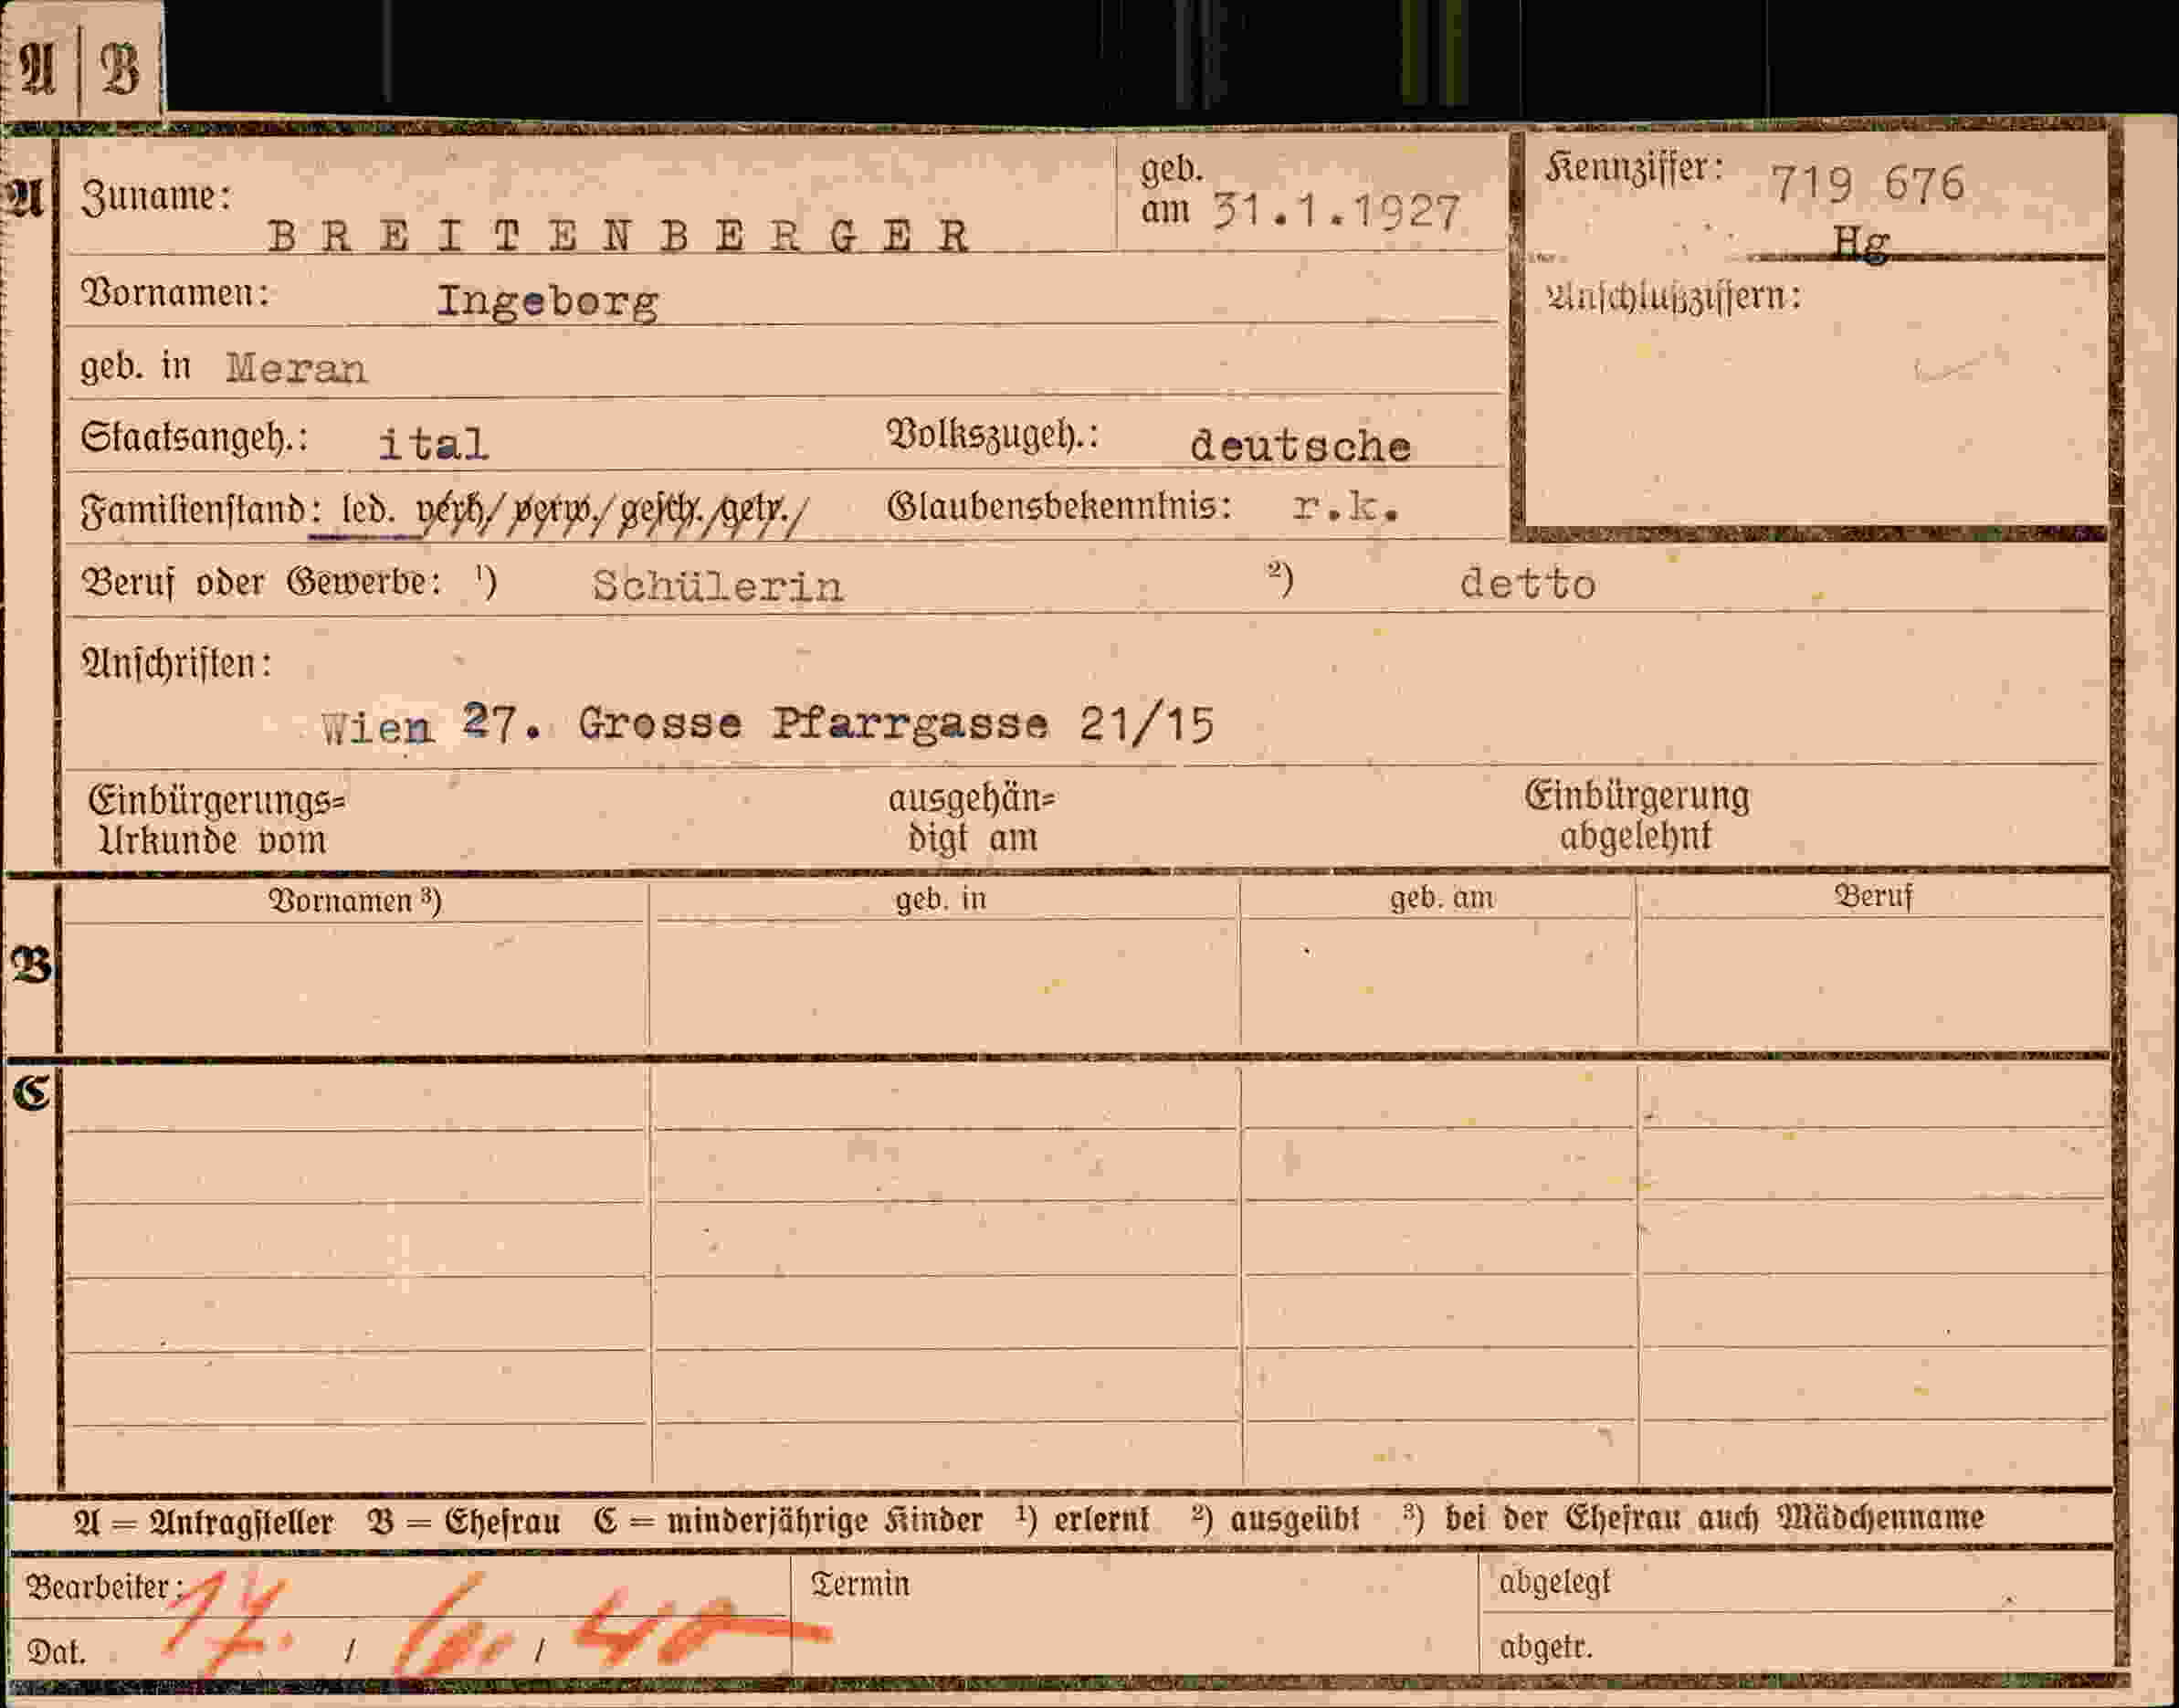 A | B
A
Zuname: BREITENBERGER
geb. am 31.1.1927
Kennziffer: 719 676
Hg
Vornamen: Ingeborg
Anschlußziffern:
geb. in Meran
Staatsangeh.: ital Volkszugeh.: deutsche
Familienstand: led. verh/ verw./ gesch./getr./ Glaubensbekenntnis: r.k.
Beruf oder Gewerbe: ¹) Schülerin ²) detto
Anschriften:
Wien 27. Grosse Pfarrgasse 21/15
Einbürgerungs= Urkunde vom
ausgehän= digt am
Einbürgerung abgelehnt
B
Vornamen ³) geb. in geb. am Beruf
C
A = Antragsteller B = Ehefrau C = minderjährige Kinder ¹) erlernt ²) ausgeübt ³) bei der Ehefrau auch Mädchenname
Bearbeiter: Termin abgelegt
Dat. 17. / 6. / 40 abgetr.